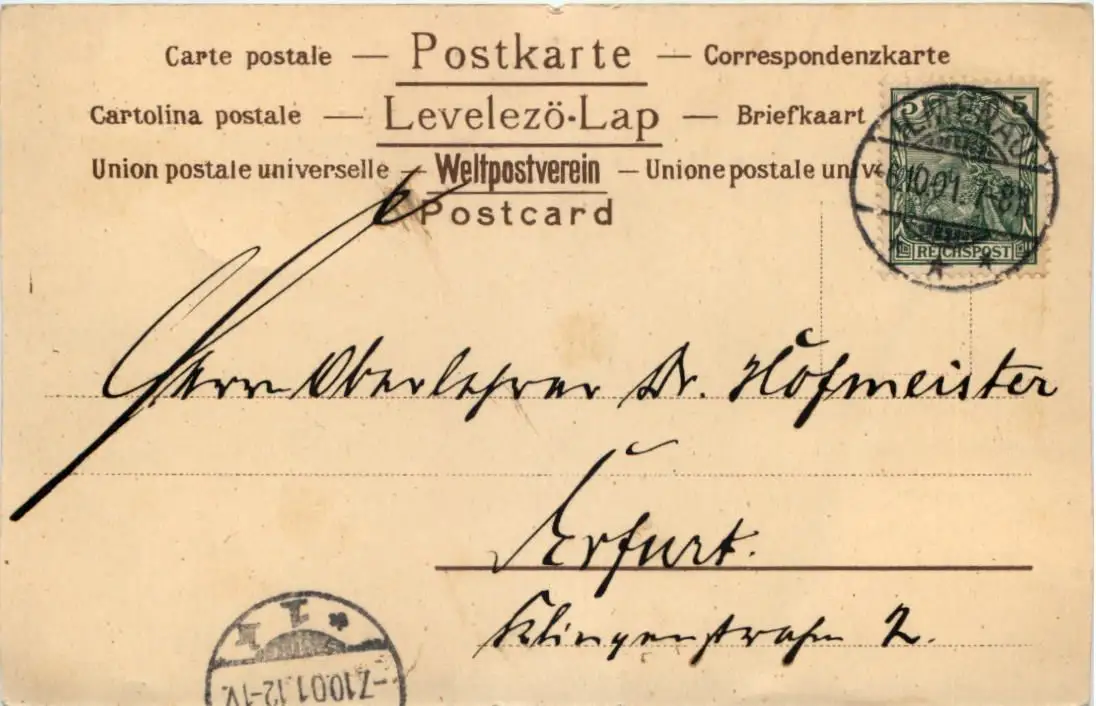 Carte postale — Postkarte — Correspondenzkarte
Cartolina postale — Levelezö-Lap — Briefkaart
Union postale universelle — Weltpostverein — Unione postale univ
Postcard
5 5
REICHSPOST
ILMENAU
6.10.01. 7-8N.
Herrn Oberlehrer Dr. Hofmeister
Erfurt.
Klingenstraße 2.
-7.10.01.12-1V.